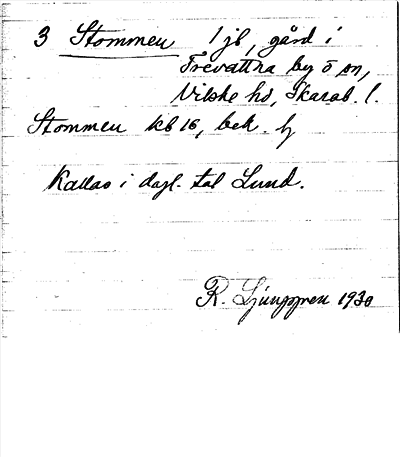 3 Stommen 1 jb, gård i
Trevattna by o sn,
Vilske hd, Skarab. l.
Stommen kb 16, bek. hj
Kallas i dagl. tal Lund.
R. Ljunggren 1930